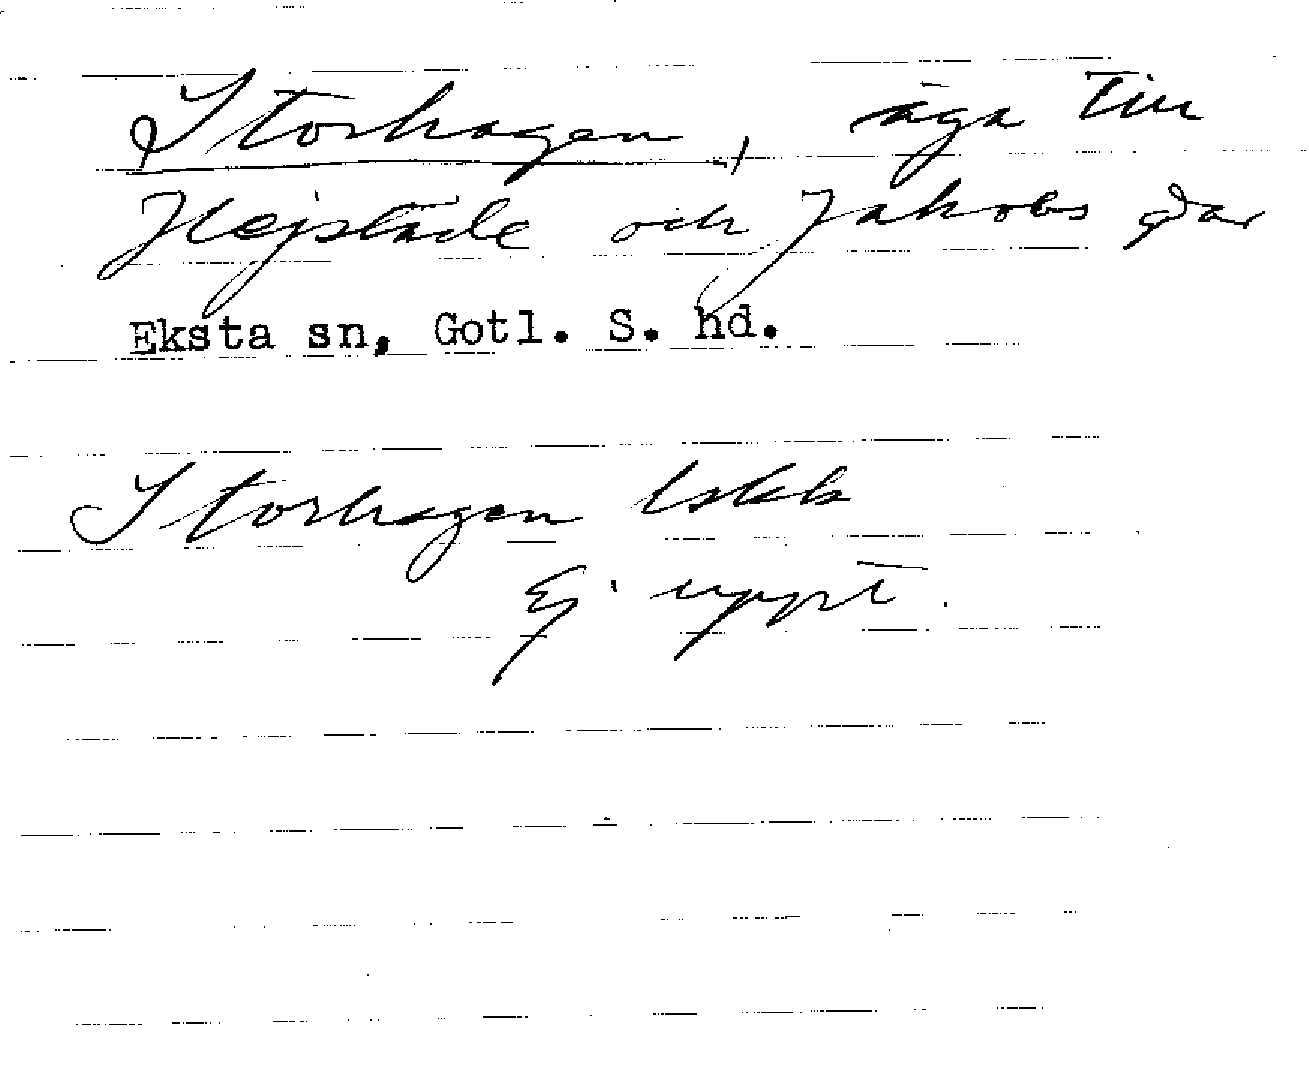 Storhagen, äga till
Hejstäde och Jakobs gdar
Eksta sn, Gotl. S. hd.
Storhagen lskb
Ej uppt.